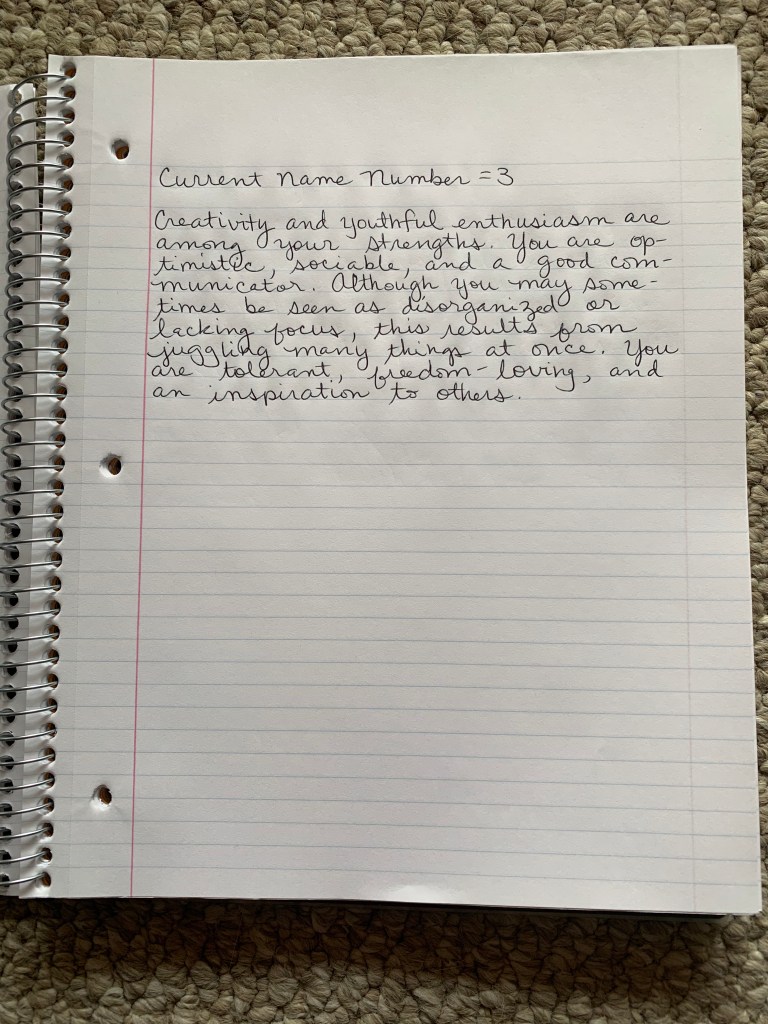 Current Name Number = 3
Creativity and youthful enthusiasm are
among your strengths. You are op-
timistic, sociable, and a good com-
municator. Although you may some-
times be seen as disorganized or
lacking focus, this results from
juggling many things at once. You
are tolerant, freedom-loving, and
an inspiration to others.